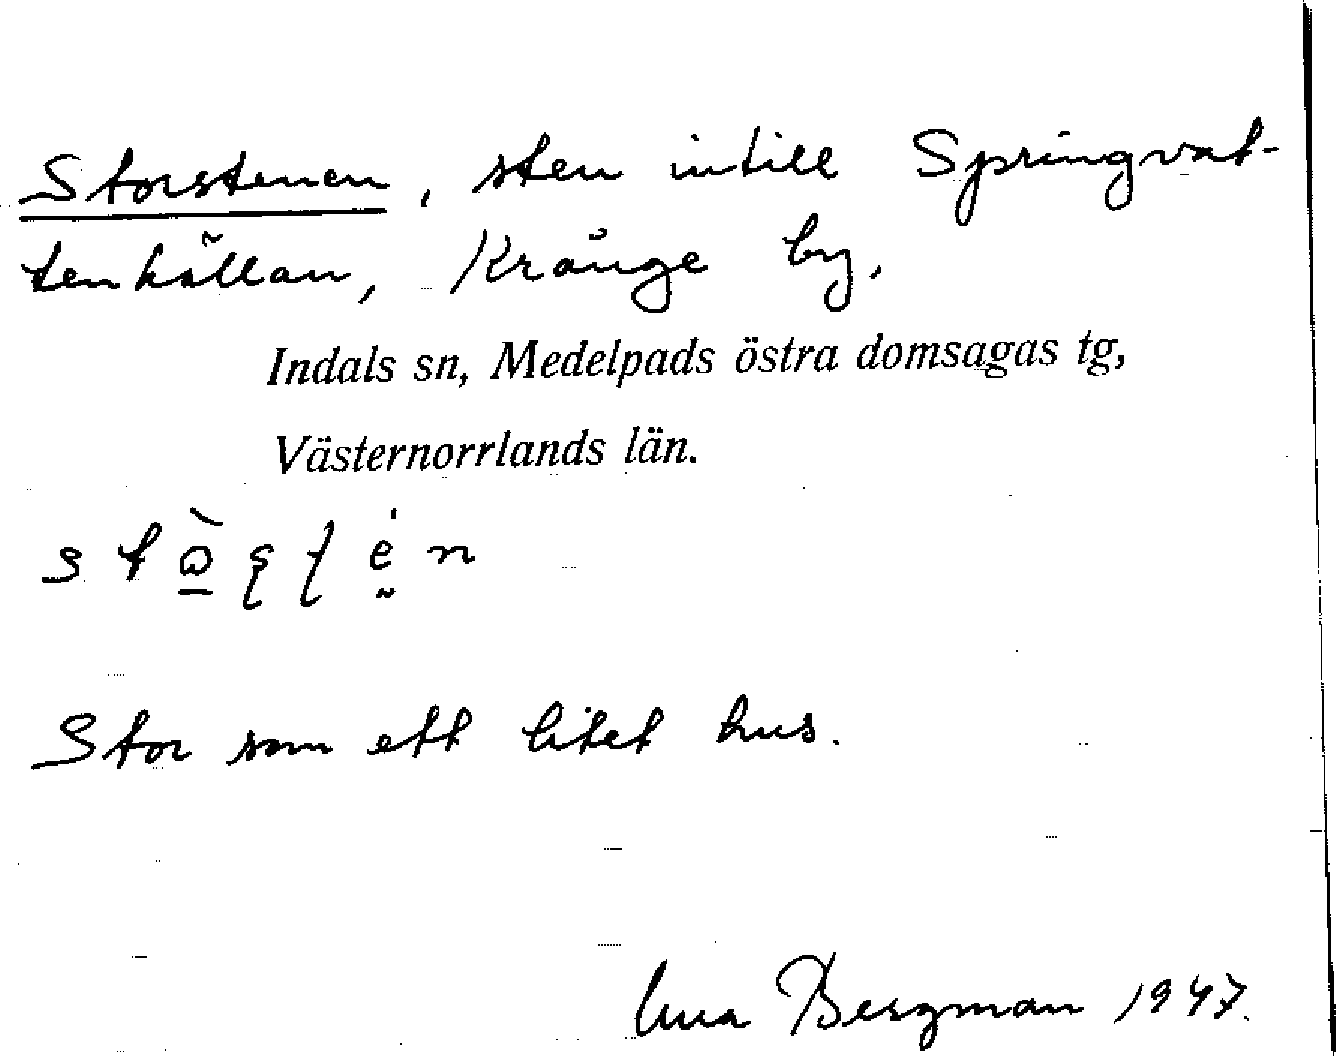 Storstenen, sten intill Springvat-
tenkällan, Krånge by.
Indals sn, Medelpads östra domsagas tg,
Västernorrlands län.
Stor som ett litet hus.
Bergman 1947.